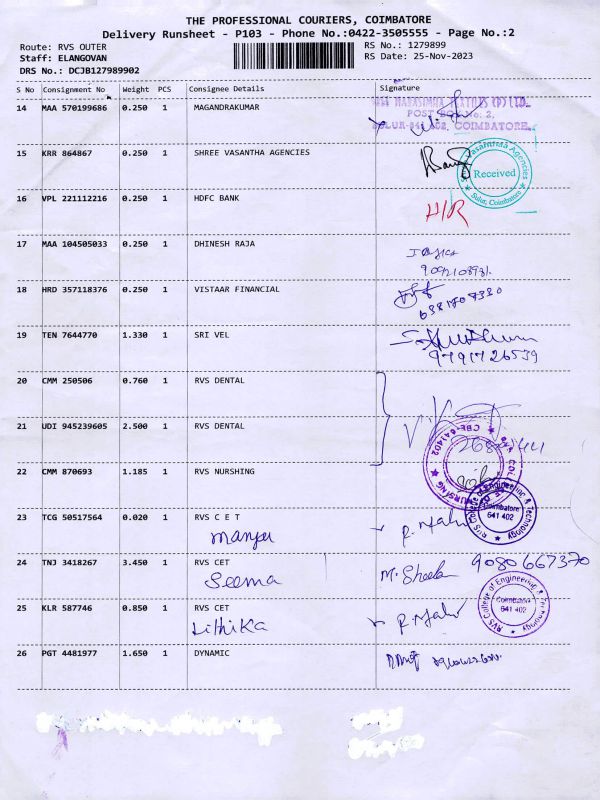 THE PROFESSIONAL COURIERS, COIMBATORE
Delivery Runsheet - P103 - Phone No.:0422-3505555 - Page No.:2
Route: RVS OUTER RS No.: 1279899
Staff: ELANGOVAN RS Date: 25-Nov-2023
DRS No.: DCJB127989902
S No Consignment No Weight PCS Consignee Details Signature
14 MAA 570199686 0.250 1 MAGANDRAKUMAR
POST BOX No: 2,
COIMBATORE
15 KRR 864867 0.250 1 SHREE VASANTHA AGENCIES
Vasantha Agencies Received Sulur, Coimbatore
16 VPL 221112216 0.250 1 HDFC BANK
H/R
17 MAA 104505033 0.250 1 DHINESH RAJA
18 HRD 357118376 0.250 1 VISTAAR FINANCIAL
19 TEN 7644770 1.330 1 SRI VEL
9791726539
20 CMM 250506 0.760 1 RVS DENTAL
21 UDI 945239605 2.500 1 RVS DENTAL
CBE-641402
22 CMM 870693 1.185 1 RVS NURSHING
NURSING
23 TCG 50517564 0.020 1 RVS C E T
manju
RVS College of Engineering & Technology Coimbatore 641 402
24 TNJ 3418267 3.450 1 RVS CET
Seema M. Sheela 9080667370
25 KLR 587746 0.850 1 RVS CET
Lithika
RVS College of Engineering & Technology Coimbatore 641 402
26 PGT 4481977 1.650 1 DYNAMIC